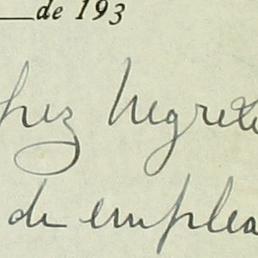 de 193
pez Negrete
de emplea